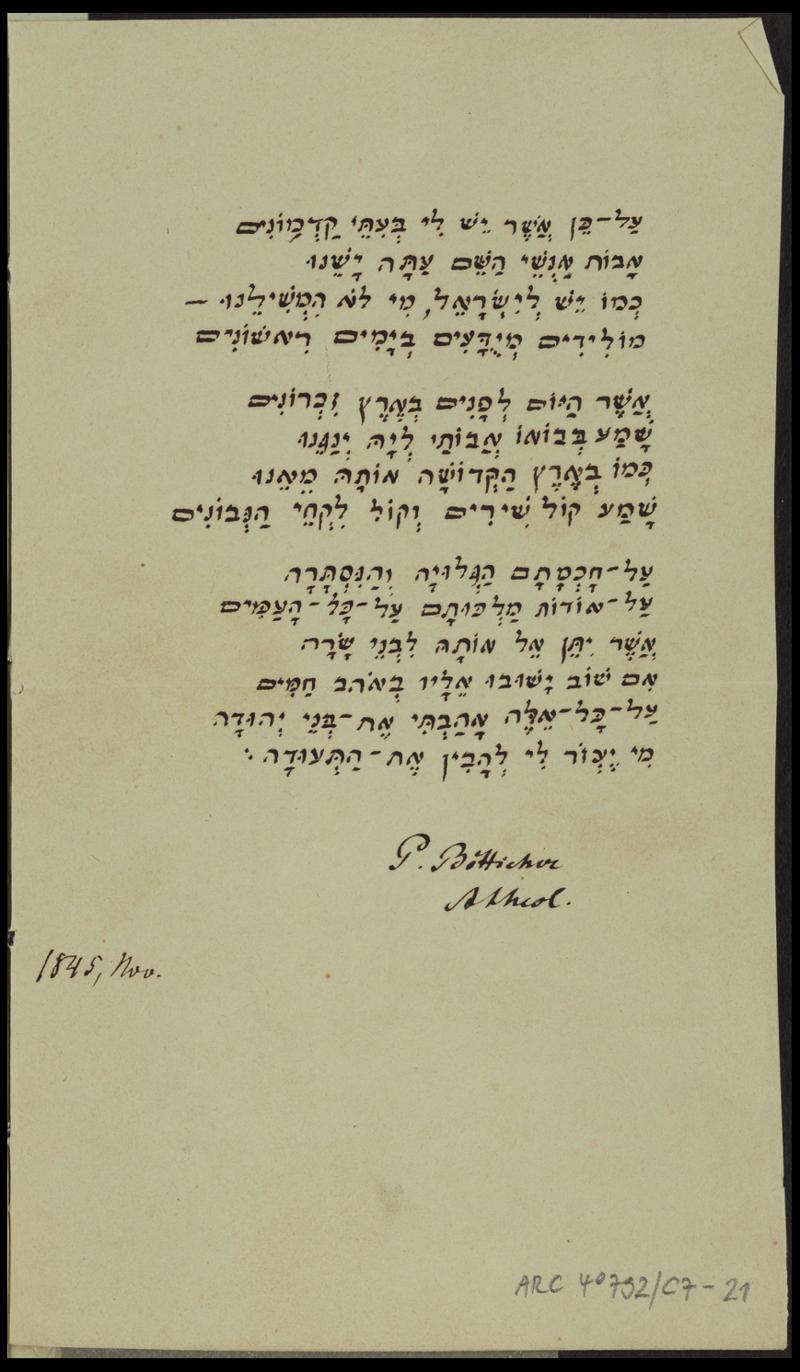 עַל־כֵּן אֲשֶׁר יֵשׁ לִי בְּעִתֵּי קַדְמוֹנִים
אָבוֹת אַנְשֵׁי הַשֵּׁם עַתָּה יָשֵׁנוּ
כְּמוֹ יֵשׁ לְיִשְׂרָאֵל, מִי לֹא הִמְשִׁילֵנוּ —
מוֹלִידִים מְיֻדָּעִים בְּיָמִים רִאשׁוֹנִים
אֲשֶׁר הַיּוֹם לְפָנִים בְּאֶרֶץ זִכְרוֹנִים
שָׁמַע בְּבוֹאוֹ אֲבוֹתַי לְיָהּ יְנַגֵּנוּ
כְּמוֹ בְּאֶרֶץ הַקְּדוֹשָׁה אוֹתָהּ מֵאֵנוּ
שָׁמַע קוֹל שִׁירִים וְקוֹל לִקְחֵי הַנְּבוֹנִים
עַל־חָכְמָתָם הַגְּלוּיָה וְהַנִּסְתָּרָה
עַל־אוֹדוֹת מַלְכוּתָם עַל־כָּל־הָעַמִּים
אֲשֶׁר יִתֵּן אֵל אוֹתָהּ לִבְנֵי שָׂרָה
אִם שׁוֹב יָשׁוּבוּ אֵלָיו בְּאֹהַב חַמִּים
עַל־כָּל־אֵלֶּה אָהַבְתִּי אֶת־בְּנֵי יְהוּדָה
מִי יַעְזֹר לִי לְהָבִין אֶת־הַתְּעוּדָה :
P. Bötticher
1845, Nov.
ARC 4° 792/C7-21